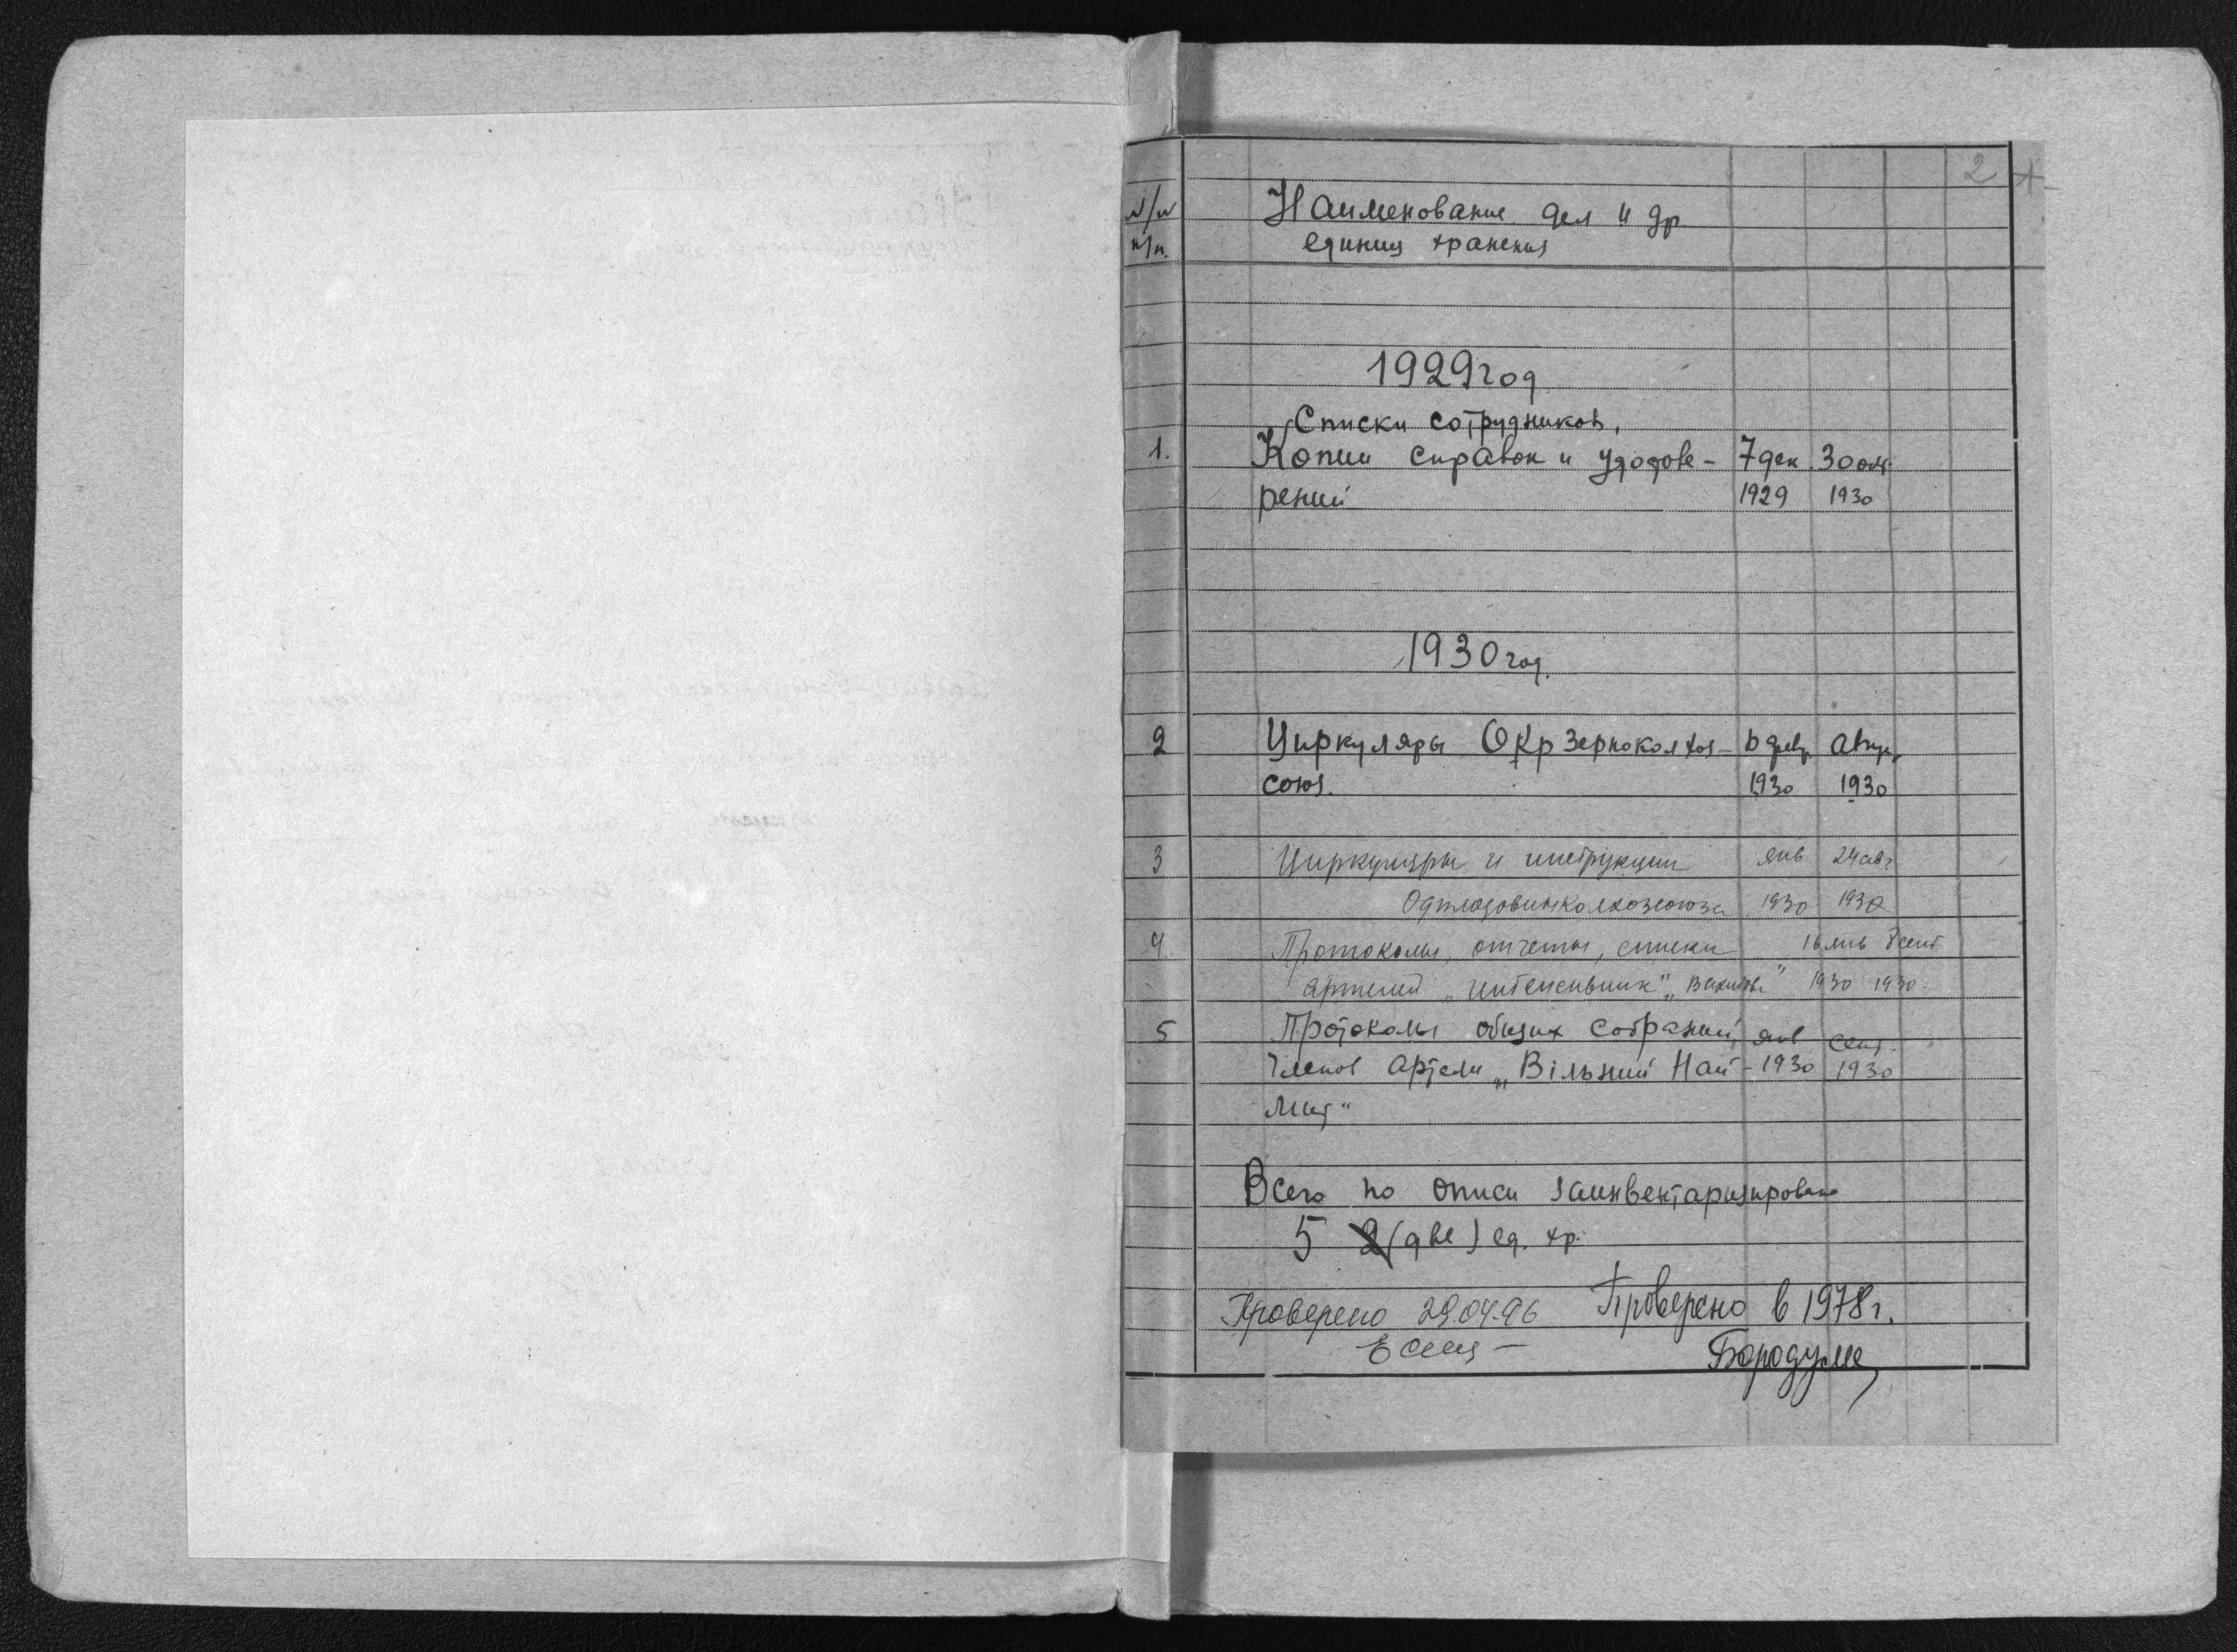 2 1
№/№ Наименование дел и др.
п/п. единиц хранения
1929 год
Списки сотрудников,
1. Копии справок и удостове- 7 дек 30 окт.
рений 1929 1930
1930 год.
2 Циркуляры Окрзерноколхоз- 6 февр. Август
союз. 1930 1930
3 Циркуляры и инструкции янв 24 авг
1930 1930
4 Протоколы, отчеты, списки 16 янв 8 сент
артелей „Интенсивник" „ " 1930 1930
5 Протоколы общих собраний янв сент.
членов артели „Вільний Най- 1930 1930
мит"
Всего по описи заинвентаризировано
5 2 (две) ед. хр.
Проверено 29.04.96 Проверено в 1978 г.